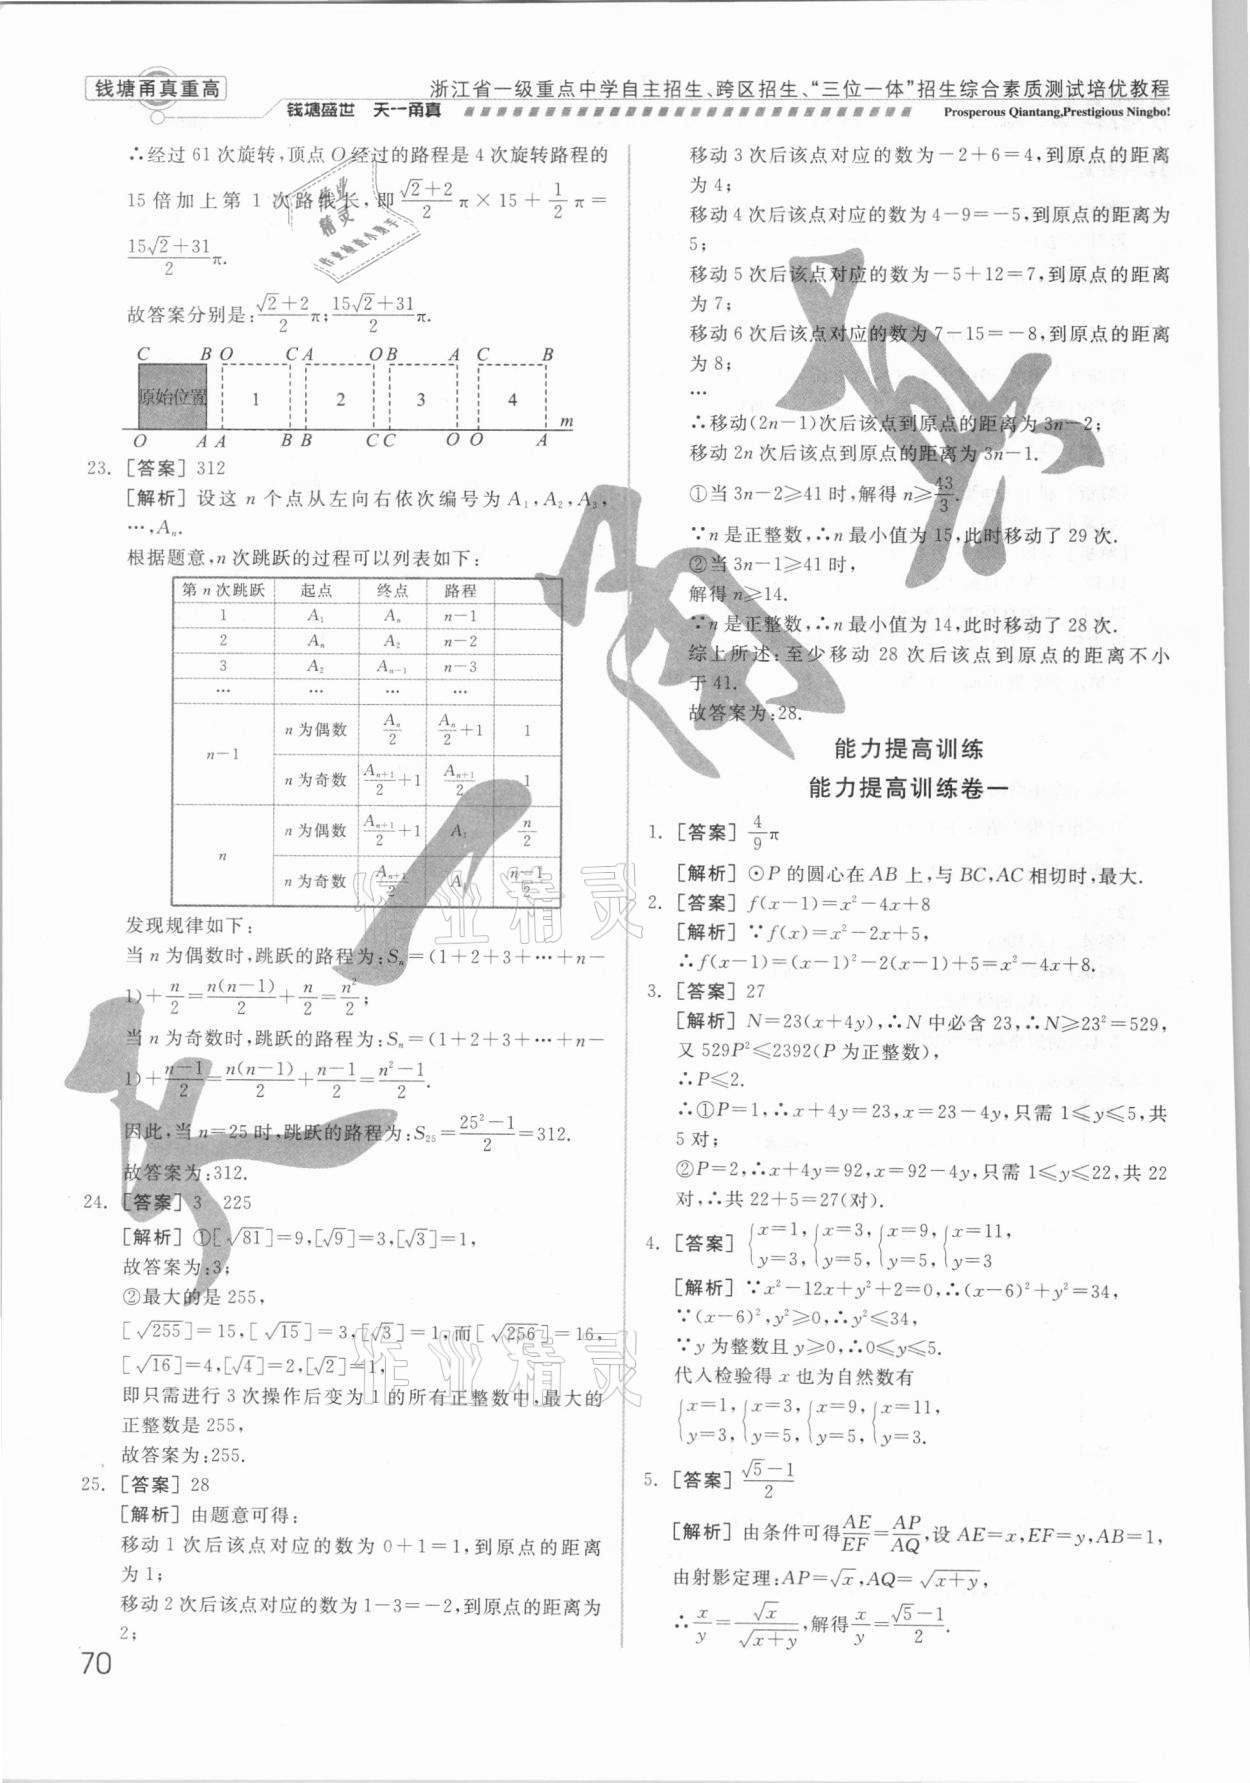 钱塘甬真重高
浙江省一级重点中学自主招生、跨区招生、“三位一体”招生综合素质测试培优教程
钱塘盛世 天一甬真
Prosperous Qiantang,Prestigious Ningbo!
∴经过 61 次旋转,顶点 O 经过的路程是 4 次旋转路程的
15 倍加上第 1 次路线长,即(√2+2)/2 π×15+1/2 π=
(15√2+31)/2 π.
故答案分别是:(√2+2)/2 π;(15√2+31)/2 π.
C B O C A O B A C B
原始位置 1 2 3 4 m
O A A B B C C O O A
23. [答案]312
[解析] 设这 n 个点从左向右依次编号为 A₁,A₂,A₃,
…,Aₙ.
根据题意,n 次跳跃的过程可以列表如下:
第 n 次跳跃 起点 终点 路程
1 A₁ Aₙ n−1
2 Aₙ A₂ n−2
3 A₂ Aₙ₋₁ n−3
… … … …
n−1 n 为偶数 Aₙ/2 Aₙ/2+1 1
n 为奇数 Aₙ₊₁/2+1 Aₙ₊₁/2 1
n n 为偶数 Aₙ₊₁/2+1 A₁ n/2
n 为奇数 Aₙ₊₁/2 A₁ (n−1)/2
发现规律如下:
当 n 为偶数时,跳跃的路程为:Sₙ=(1+2+3+…+n−
1)+n/2=n(n−1)/2+n/2=n²/2;
当 n 为奇数时,跳跃的路程为:Sₙ=(1+2+3+…+n−
1)+(n−1)/2=n(n−1)/2+(n−1)/2=(n²−1)/2.
因此,当 n=25 时,跳跃的路程为:S₂₅=(25²−1)/2=312.
故答案为:312.
24. [答案]3 225
[解析] ①[√81]=9,[√9]=3,[√3]=1,
故答案为:3;
②最大的是 255,
[√255]=15,[√15]=3,[√3]=1,而[√256]=16,
[√16]=4,[√4]=2,[√2]=1,
即只需进行 3 次操作后变为 1 的所有正整数中,最大的
正整数是 255,
故答案为:255.
25. [答案]28
[解析] 由题意可得:
移动 1 次后该点对应的数为 0+1=1,到原点的距离
为 1;
移动 2 次后该点对应的数为 1−3=−2,到原点的距离为
2;
70
移动 3 次后该点对应的数为−2+6=4,到原点的距离
为 4;
移动 4 次后该点对应的数为 4−9=−5,到原点的距离为
5;
移动 5 次后该点对应的数为−5+12=7,到原点的距离
为 7;
移动 6 次后该点对应的数为 7−15=−8,到原点的距离
为 8;
…
∴移动(2n−1)次后该点到原点的距离为 3n−2;
移动 2n 次后该点到原点的距离为 3n−1.
①当 3n−2≥41 时,解得 n≥43/3.
∵n 是正整数,∴n 最小值为 15,此时移动了 29 次.
②当 3n−1≥41 时,
解得 n≥14.
∵n 是正整数,∴n 最小值为 14,此时移动了 28 次.
综上所述:至少移动 28 次后该点到原点的距离不小
于 41.
故答案为:28.
能力提高训练
能力提高训练卷一
1. [答案] 4/9 π
[解析] ⊙P 的圆心在 AB 上,与 BC,AC 相切时,最大.
2. [答案] f(x−1)=x²−4x+8
[解析] ∵f(x)=x²−2x+5,
∴f(x−1)=(x−1)²−2(x−1)+5=x²−4x+8.
3. [答案]27
[解析] N=23(x+4y),∴N 中必含 23,∴N≥23²=529,
又 529P²≤2392(P 为正整数),
∴P≤2.
∴①P=1,∴x+4y=23,x=23−4y,只需 1≤y≤5,共
5 对;
②P=2,∴x+4y=92,x=92−4y,只需 1≤y≤22,共 22
对,∴共 22+5=27(对).
4. [答案] {x=1, {x=3, {x=9, {x=11,
y=3, y=5, y=5, y=3
[解析] ∵x²−12x+y²+2=0,∴(x−6)²+y²=34,
∵(x−6)²,y²≥0,∴y²≤34,
∵y 为整数且 y≥0,∴0≤y≤5.
代入检验得 x 也为自然数有
{x=1, {x=3, {x=9, {x=11,
y=3, y=5, y=5, y=3.
5. [答案] (√5−1)/2
[解析] 由条件可得AE/EF=AP/AQ,设 AE=x,EF=y,AB=1,
由射影定理:AP=√x,AQ=√(x+y),
∴x/y=√x/√(x+y),解得x/y=(√5−1)/2.
作业精灵
作业精灵
作业精灵